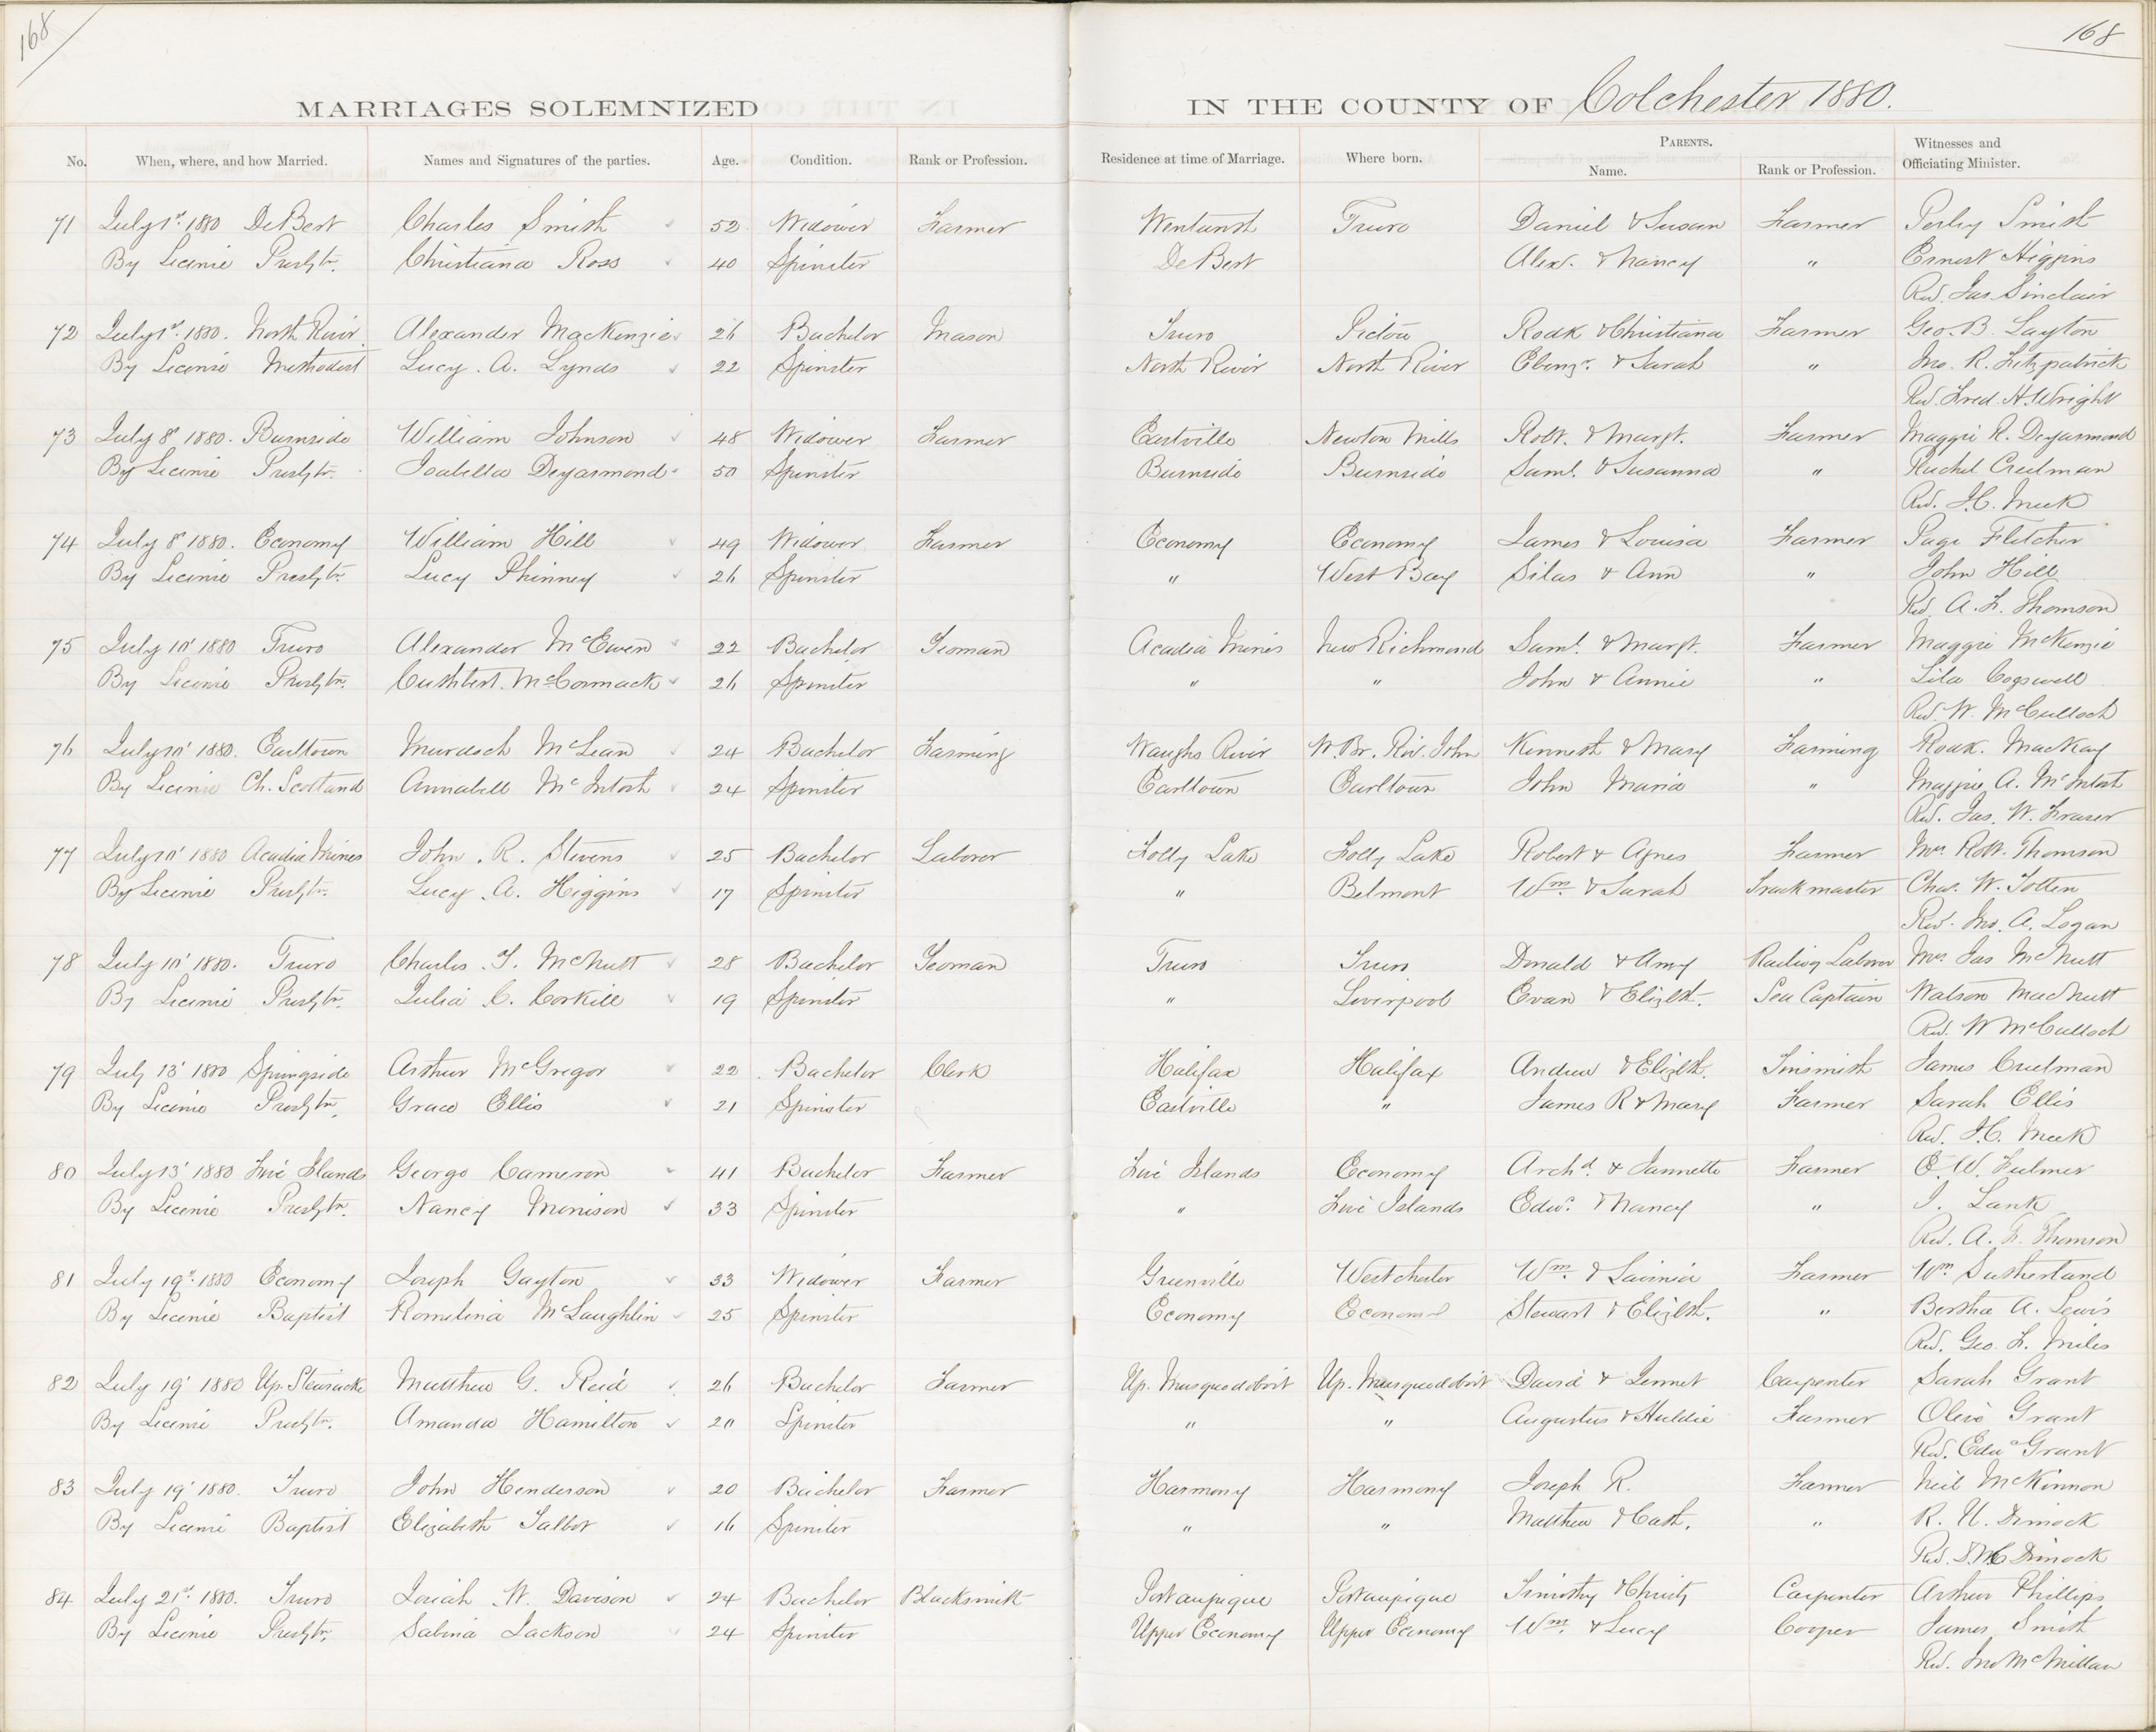 168
168
MARRIAGES SOLEMNIZED IN THE COUNTY OF Colchester 1880.
No. When, where, and how Married. Names and Signatures of the parties. Age. Condition. Rank or Profession. Residence at time of Marriage. Where born. PARENTS. Name. Rank or Profession. Witnesses and Officiating Minister.
71 July 1st 1880 DeBert Charles Smith 52 Widower Farmer Truro Daniel & Susan Farmer Perley Smith
By Licence Presbtn. Christiana Ross 40 Spinster DeBert Alexr. & Nancy " Ernest Higgins
Rev. Jas. Sinclair
72 July 1st 1880. North River Alexander MacKenzie 26 Bachelor Mason Truro Pictou Rodk & Christiana Farmer Geo. B. Layton
By Licence Methodist Lucy. A. Lynds 22 Spinster North River North River Ebenzr. & Sarah " Jno. R. Fitzpatrick
Rev. Fred. H. Wright
73 July 8' 1880. Burnside William Johnson 48 Widower Farmer Eastville Newton Mills Robt. & Margt. Farmer Maggie R. Deyarmond
By Licence Presbtn. Isabella Deyarmond 50 Spinster Burnside Burnside Saml. & Susanna " Rachel Creelman
Rev. J. C. Meek
74 July 8' 1880. Economy William Hill 49 Widower Farmer Economy Economy James & Louisa Farmer Page Fletcher
By Licence Presbtn. Lucy Phinney 26 Spinster " West Bay Silas & Ann " John Hill
Rev. A. F. Thomson
75 July 10' 1880 Truro Alexander McEwen 22 Bachelor Yeoman Acadia Mines New Richmond Saml. & Margt. Farmer Maggie McKenzie
By Licence Presbtn. Cuthbert. McCormack 26 Spinster " " John & Annie " Lila Cogswell
Rev. W. McCulloch
76 July 10' 1880. Earltown Murdoch McLean 24 Bachelor Farming Waughs River W. Br. Riv. John Kenneth & Mary Farming Rodk. MacKay
By Licence Ch. Scotland Annabell McIntosh 24 Spinster Earltown Earltown John Maria " Maggie A. McIntosh
Rev. Jas. W. Fraser
77 July 10' 1880 Acadia Mines John. R. Stevens 25 Bachelor Laborer Folly Lake Folly Lake Robert & Agnes Farmer Mrs. Robt. Thomson
By Licence Presbtn. Lucy. A. Higgins 17 Spinster " Belmont Wm. & Sarah Track master Chas. W. Totten
Rev. Jno. A. Logan
78 July 10' 1880. Truro Charles. T. McNutt 28 Bachelor Yeoman Truro Truro Donald & Amy Railway Laborer Mrs. Jas McNutt
By Licence Presbtn. Julia C. Corkill 19 Spinster " Liverpool Evan & Elizbth. Sea Captain Watson MacNutt
Rev. W McCulloch
79 July 13' 1880 Springside Arthur McGregor 22 Bachelor Clerk Halifax Halifax Andrew & Elizbth. Tinsmith James Creelman
By Licence Presbtn. Grace Ellis 21 Spinster Eastville " James R & Mary Farmer Sarah Ellis
Rev. J. C. Meek
80 July 13' 1880 Five Islands George Cameron 41 Bachelor Farmer Five Islands Economy Archd. & Jannette Farmer E. W. Fulmer
By Licence Presbtn. Nancy Morrison 33 Spinster " Five Islands Edwd. & Nancy " J. Lank
Rev. A. F. Thomson
81 July 19' 1880 Economy Joseph Gayton 33 Widower Farmer Greenville Westchester Wm. & Lavinia Farmer Wm. Sutherland
By Licence Baptist Romelina McLaughlin 25 Spinster Economy Economy Stewart & Elizbth. " Bertha A. Lewis
Rev. Geo. F. Miles
82 July 19' 1880 Up. Stewiacke Matthew G. Reid 26 Bachelor Farmer Up. Musquodoboit Up. Musquodoboit David & Jennet Carpenter Sarah Grant
By Licence Presbtn. Amanda Hamilton 20 Spinster " " Augustus & Huldie Farmer Olive Grant
Rev. Edwd Grant
83 July 19' 1880. Truro John Henderson 20 Bachelor Farmer Harmony Harmony Joseph R. Farmer Neil McKinnon
By Licence Baptist Elizabeth Talbot 16 Spinster " " Matthew & Cath. " R. U. Dimock
Rev. D. W. C. Dimock
84 July 21st 1880. Truro Josiah W. Davison 24 Bachelor Blacksmith Portaupique Portaupique Timothy & Christy Carpenter Arthur Phillips
By Licence Presbtn. Sabina Jackson 24 Spinster Upper Economy Upper Economy Wm. & Lucy Cooper James Smith
Rev. Jno McMillan